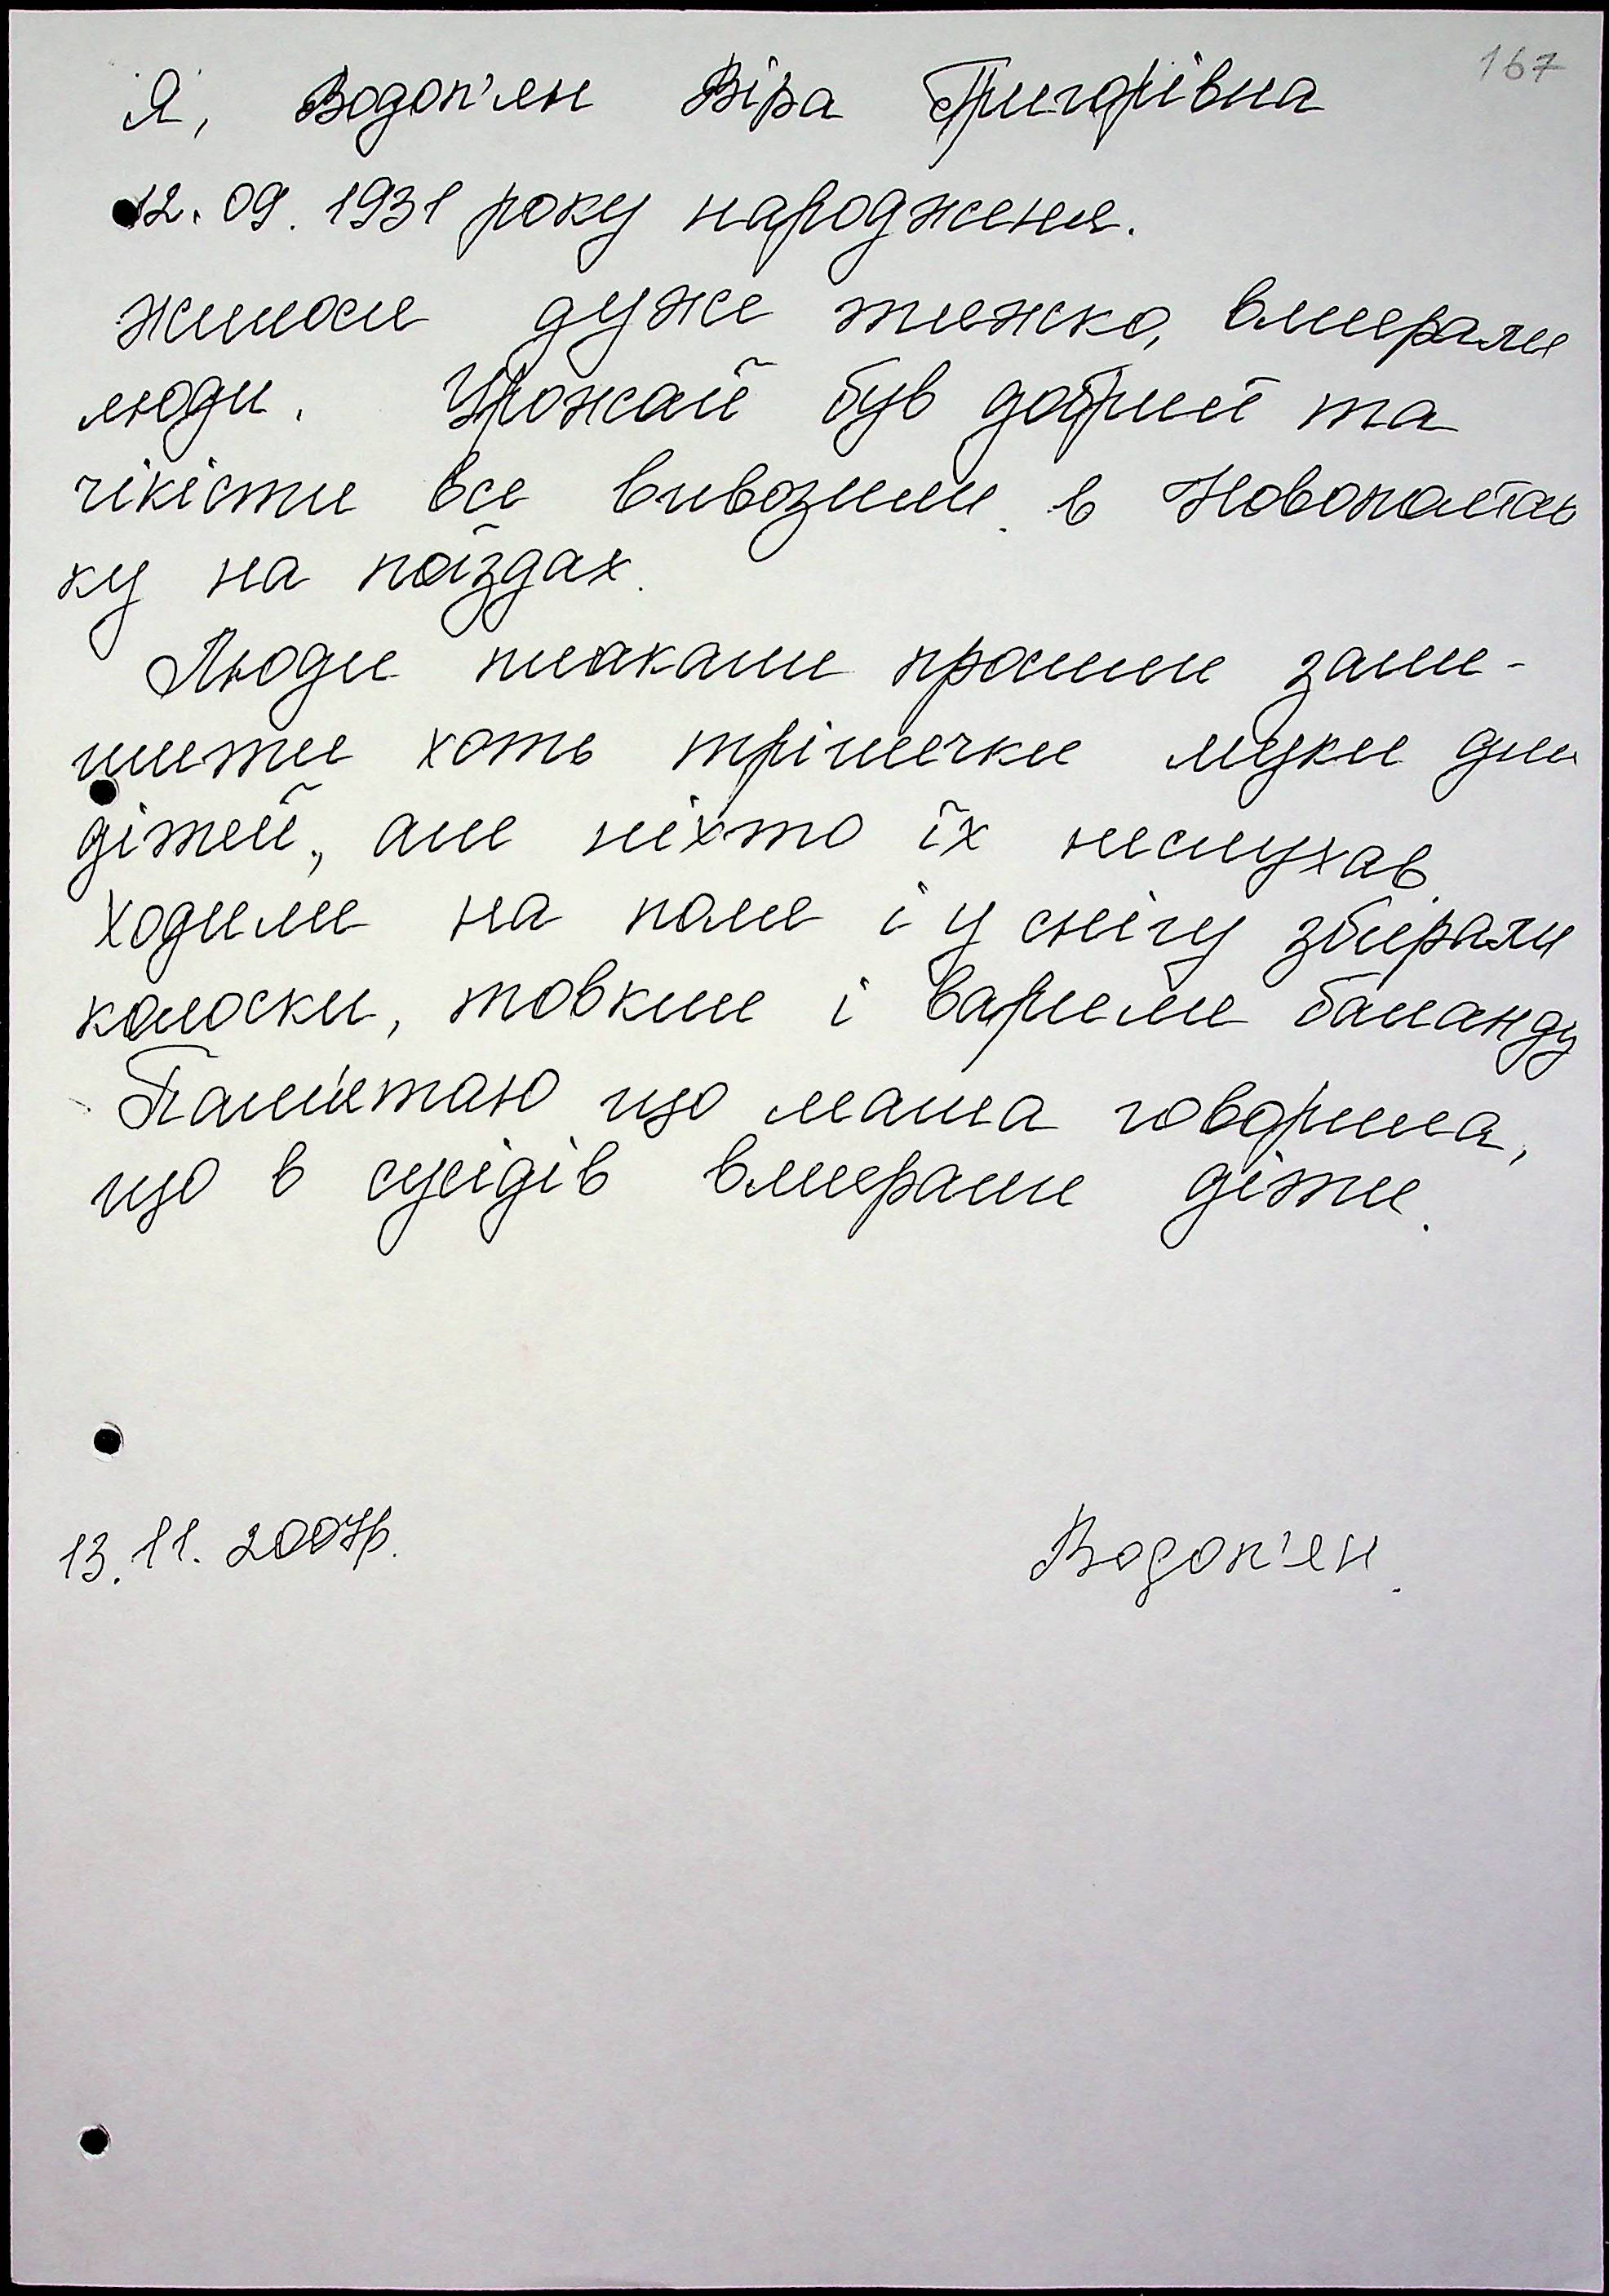 167
Я, Водоп'ян Віра Григорівна
12.09.1931 року народження.
жилося дуже тяжко, вмерали
люди. Урожай був добрий та
чікісти все вивозили в
ку на поїздах.
Люди плакали просили зали-
шити хоть трішечки муки для
дітей, але ніхто їх неслухав.
Ходили на поле і у снігу збирали
колоски, товкли і варили баланду
Пам'ятаю що мама говорила,
що в сусідів вмерали діти.
13.11.2007р.
Водоп'ян.